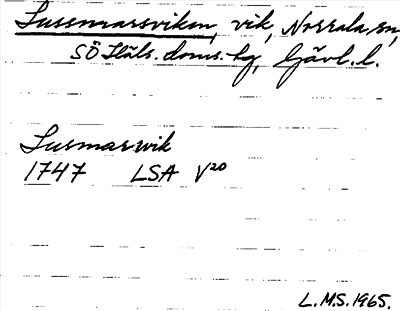 Sussmarsviken, vik, Norrala sn,
SÖ Häls. doms. hg, Gävl. l.
Susmarwik
1747 LSA V20
L.M.S. 1965.